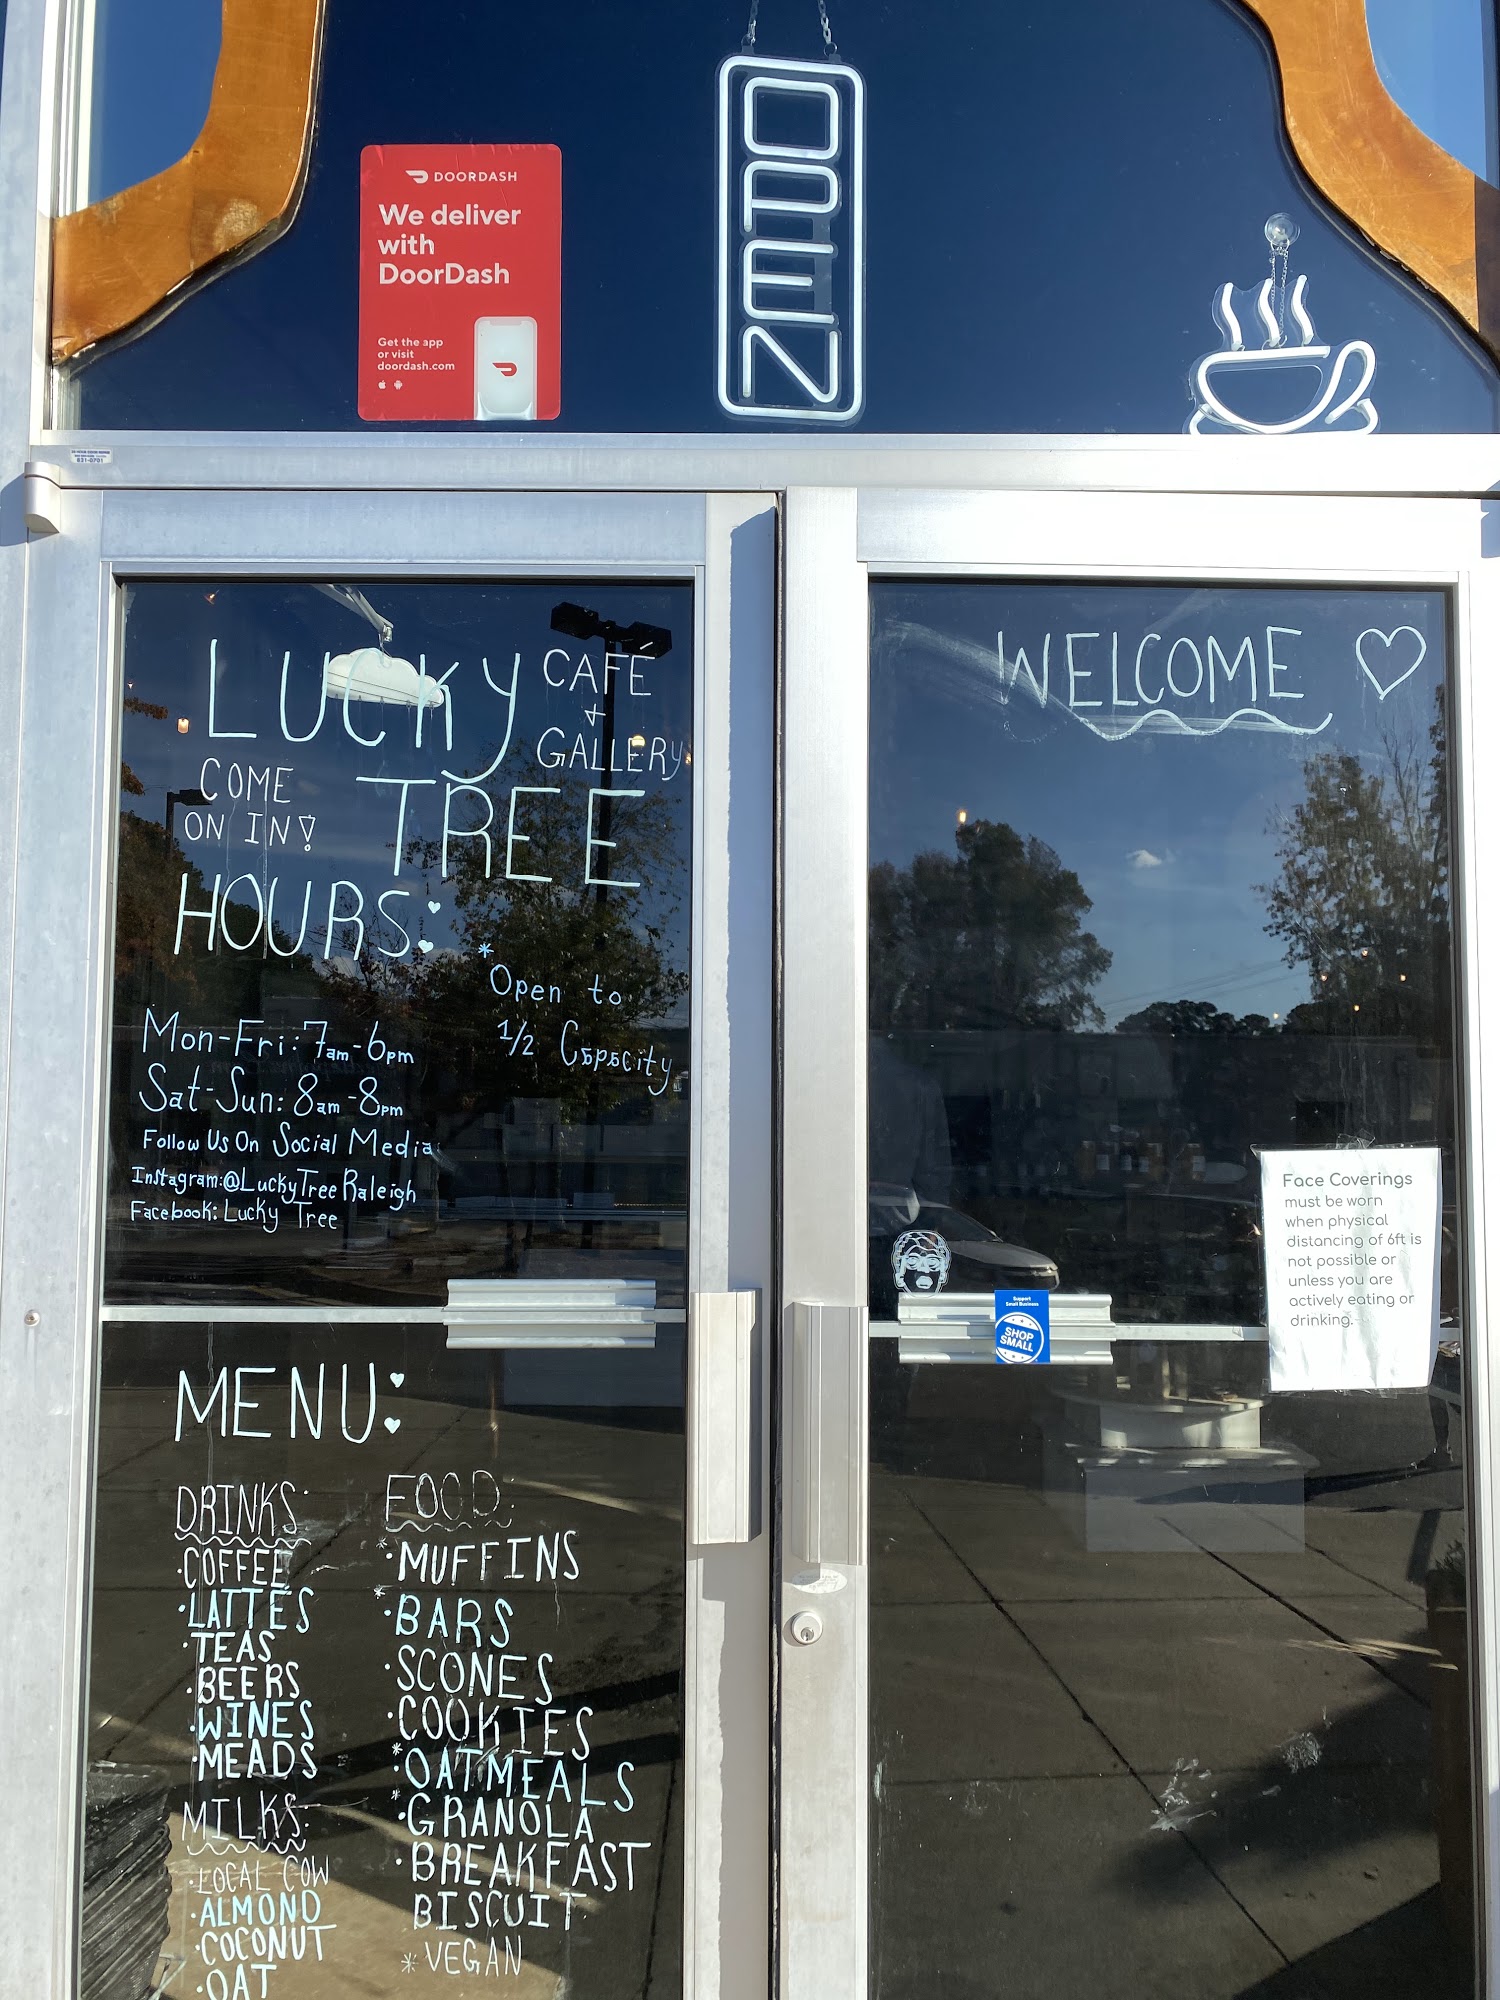 DOORDASH
We deliver
with
DoorDash
Get the app
or visit
doordash.com
OPEN
831-0701
LUCKY
CAFE
+
GALLERY
COME
ON IN!
TREE
HOURS:
*Open to
1/2 Capacity
Mon-Fri: 7am-6pm
Sat-Sun: 8am-8pm
Follow Us On Social Media:
Instagram:@LuckyTreeRaleigh
Facebook: Lucky Tree
MENU:
DRINKS:
·COFFEE
·LATTES
·TEAS
·BEERS
·WINES
·MEADS
MILKS:
·LOCAL COW
·ALMOND
·COCONUT
·OAT
FOOD:
*·MUFFINS
*·BARS
·SCONES
·COOKIES
*·OATMEALS
*·GRANOLA
·BREAKFAST
BISCUIT
*VEGAN
WELCOME
Face Coverings
must be worn
when physical
distancing of 6ft is
not possible or
unless you are
actively eating or
drinking.
Support
Small Business
SHOP
SMALL